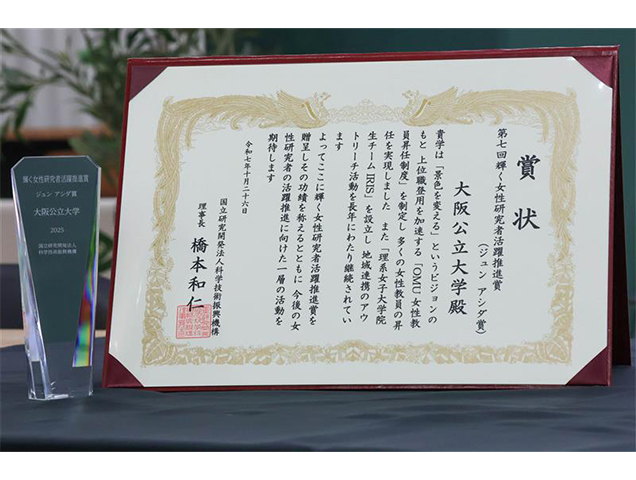 賞状
第七回輝く女性研究者活躍推進賞
（ジュン アシダ賞）
大阪公立大学殿
貴学は「景色を変える」というビジョンの
もと 上位職登用を加速する「OMU女性教
員昇任制度」を制定し 多くの女性教員の昇
任を実現しました また「理系女子大学院
生チームIRIS」を設立し 地域連携のアウ
トリーチ活動を長年にわたり継続されてい
ます
よってここに輝く女性研究者活躍推進賞を
贈呈しその功績を称えるとともに 今後の女
性研究者の活躍推進に向けた一層の活動を
期待します
令和七年十月二十六日
国立研究開発法人科学技術振興機構
理事長 橋本和仁
輝く女性研究者活躍推進賞
ジュン アシダ賞
大阪公立大学
2025
国立研究開発法人
科学技術振興機構